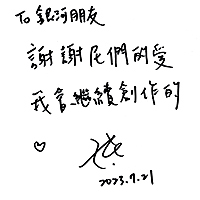 To 銀河朋友
謝謝尼們的愛
我會繼續創作的
♡
2023.7.21